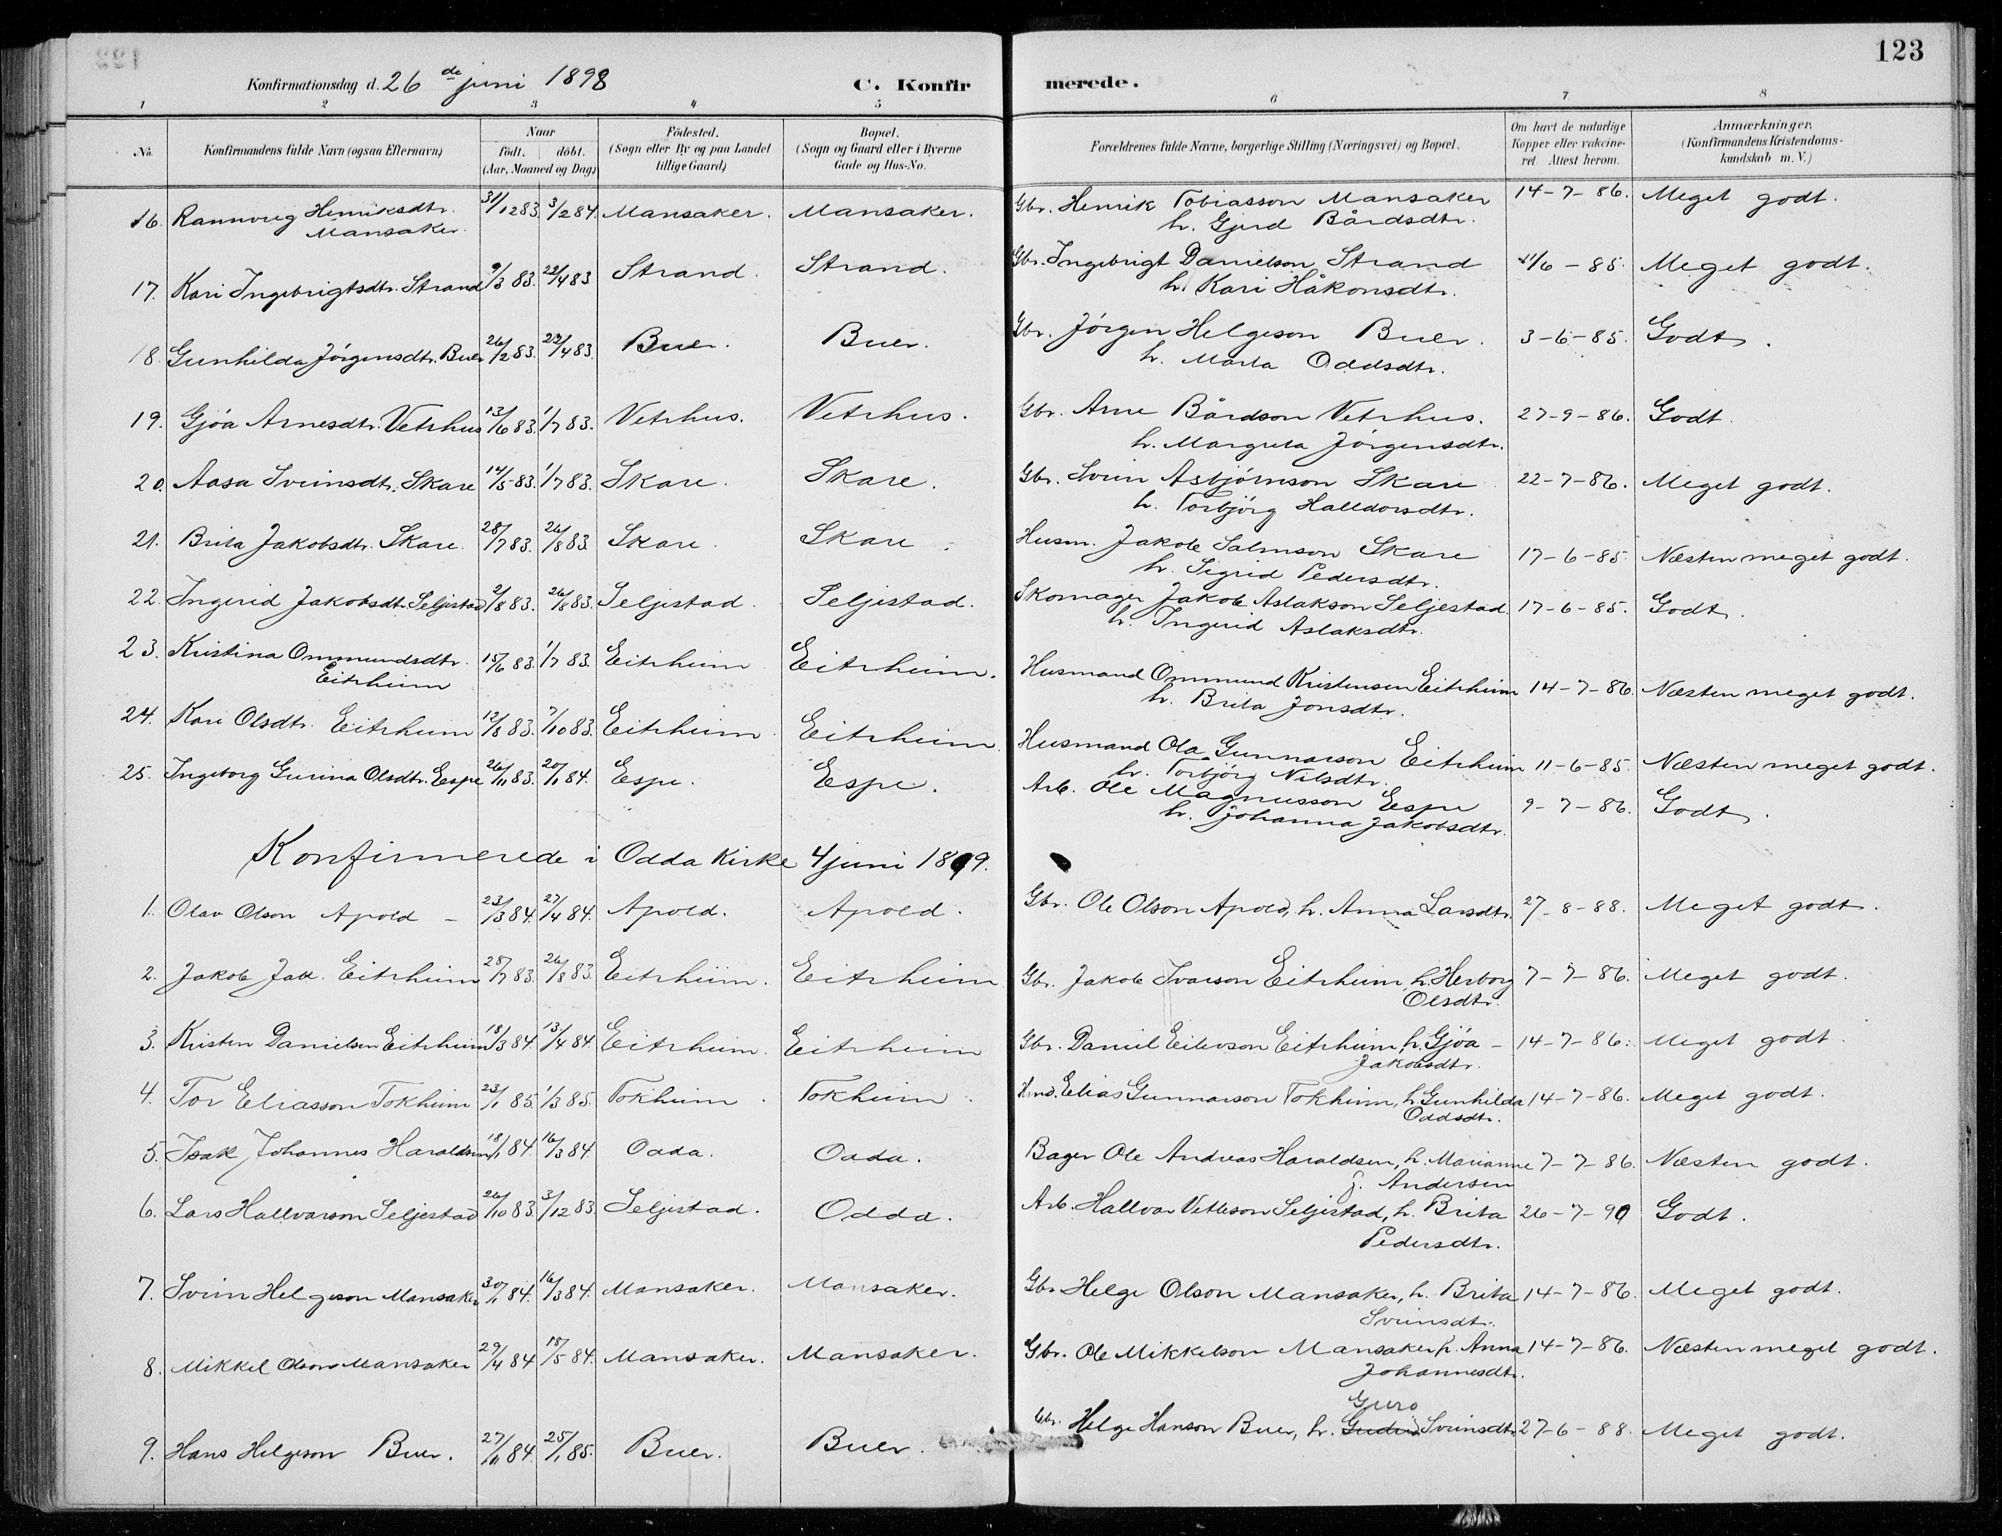 123
Konfirmationsdag d. 26de juni 1898 C. Konfirmerede.
1 2 3 4 5 6 7 8
No. Konfirmandens fulde Navn (ogsaa Efternavn) Naar født. døbt. (Aar, Maaned og Dag) Fødested. (Sogn eller By og paa Landet tillige Gaard) Bopæl. (Sogn og Gaard eller i Byerne Gade og Hus-No. Forældrenes fulde Navne, borgerlige Stilling (Næringsvei) og Bopæl. Om havt de naturlige Kopper eller vakcineret. Attest herom. Anmærkninger. (Konfirmandens Kristendomskundskab m. V.)
16. Rannveig Henriksdtr. Mansaker 31/12 83. 3/2 84. Mansaker. Mansaker. Gbr. Henrik Tobiasson Mansaker h. Gjerd Bårdsdtr. 14-7-86. Meget godt.
17. Kari Ingebrigtsdtr. Strand 9/3 83. 22/4 83 Strand. Strand. Gbr. Ingebrigt Danielson Strand h. Kari Håkonsdtr. 11/6-85. Meget godt.
18. Gunhilda Jörgensdtr. Buer 26/2 83. 22/4 83. Buer. Buer. Gbr. Jörgen Helgeson Buer. h. Marta Oddsdtr. 3-6-85. Godt.
19. Gjöa Arnesdtr. Vetrhus 13/6 83. 1/7 83. Vetrhus. Vetrhus. Gbr. Arne Bårdson Vetrhus. h. Margreta Jörgensdtr. 27-9-86. Godt.
20. Aasa Sveinsdtr. Skare 14/5 83. 1/7 83. Skare. Skare. Gbr. Svein Asbjörnson Skare h. Torbjörg Halldorsdtr. 22-7-86. Meget godt.
21. Brita Jakobsdtr. Skare. 28/7 83. 26/8 83 Skare. Skare. Husm. Jakob Salmson Skare h. Sigrid Pedersdtr. 17-6-85. Næsten meget godt.
22. Ingerid Jakobsdtr. Seljestad 2/8 83. 26/8 83. Seljestad. Seljestad. Skomager Jakob Aslakson Seljestad h. Ingerid Aslaksdtr. 17-6-85. Godt.
23. Kristina Ommundsdtr. Eitrheim 15/6 83. 1/7 83. Eitrheim Eitrheim. Husmand Ommund Kristensen Eitrheim h. Brita Jonsdtr. 14-7-86. Næsten meget godt.
24. Kari Olsdtr. Eitrheim 12/8 83. 7/10 83. Eitrheim. Eitrheim. Husmand Ola Gunnarson Eitrheim h. Torbjörg Nilsdtr. 11-6-85. Næsten meget godt.
25. Ingeborg Gurina Olsdtr. Espe 26/11 83. 20/1 84. Espe. Espe. Arb. Ole Magnusson Espe h. Johanna Jakobsdtr. 9-7-86. Godt.
Konfirmerede i Odda Kirke 4 juni 1899.
1. Olav Olson Apold - 23/3 84. 27/4 84. Apold. Apold. Gbr. Ole Olson Apold, h. Anna Larsdtr. 27/-8-88. Meget godt.
2. Jakob Jak. Eitrheim 28/7 83. 26/8 83. Eitrheim. Eitrheim Gbr. Jakob Ivarson Eitrheim, h. Herborg Olsdtr. 7-7-86. Meget godt.
3. Kristen Danielsen Eitrheim 18/3 84. 13/4 84. Eitrheim. Eitrheim Gbr. Daniel Eilevson Eitrheim, h. Gjöa - Jakobsdtr. 14-7-86. Meget godt.
4. Tor Eliasson Tokheim 23/1 85. 1/3 85. Tokheim. Tokheim. Hmd. Elias Gunnarson Tokheim, h. Gunhilda Oddsdtr. 14-7-86. Meget godt.
5. Isak Johannes Haraldsen 18/1 84. 16/3 84. Odda. Odda. Bager Ole Andreas Haraldsen, h. Marianne f. Andersen 7-7-86. Næsten godt.
6. Lars Hallvarson Seljestad 26/10 83. 3/12 83. Seljestad. Odda. Arb. Hallvar Vetleson Seljestad, h. Brita Pedersdtr. 26-7-90 Godt.
7. Svein Helgeson Mansaker 30/1 84. 16/3 84. Mansaker. Mansaker. Gbr Helge Olson Mansaker, h. Brita Sveinsdtr. 14-7-86. Meget godt.
8. Mikkel Olson Mansaker 29/4 84. 18/5 84. Mansaker. Mansaker. Gbr. Ole Mikkelson Mansaker h. Anna Johannesdtr. 14-7-86. Næsten meget godt.
9. Hans Helgeson Buer. 27/11 84. 25/1 85. Buer. Buer. Gbr. Helge Hanson Buer, h. Guro Sveinsdtr. 27-6-88. Meget godt.